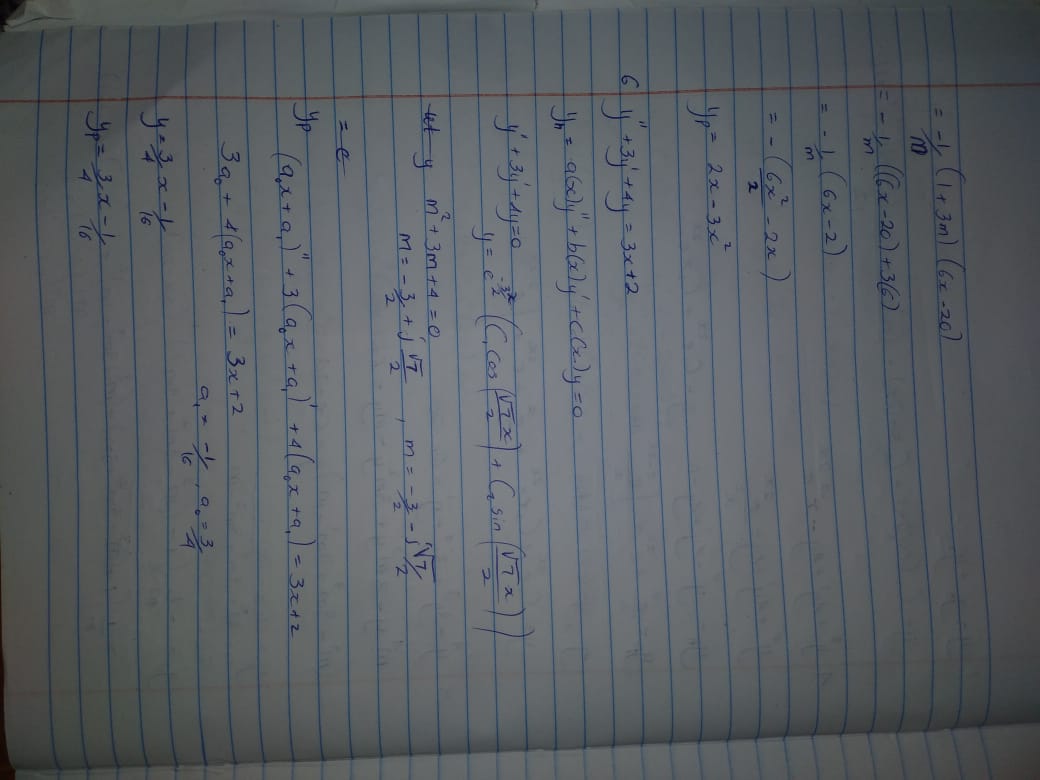 = -1/m (1+3m) (6x-20)
= -1/m ((6x-20)+3(6))
= -1/m (6x-2)
= - (6x²/2 - 2x)
yp = 2x - 3x²
6 y'' + 3y' + 4y = 3x+2
yh = a(x)y'' + b(x)y' + c(x)y = 0
y' + 3y' + 4y = 0
y = e^(-3/2 x) (C₁ cos (√7 x/2) + C₂ sin (√7 x/2))
let y m² + 3m + 4 = 0
m = -3/2 + j √7/2 , m = -3/2 - j √7/2
= e
yp (a₀x + a₁)'' + 3(a₀x + a₁)' + 4(a₀x + a₁) = 3x+2
3a₀ + 4(a₀x + a₁) = 3x+2
a₁ = -1/16 , a₀ = 3/4
y = 3/4 x - 1/16
yp = 3/4 x - 1/16